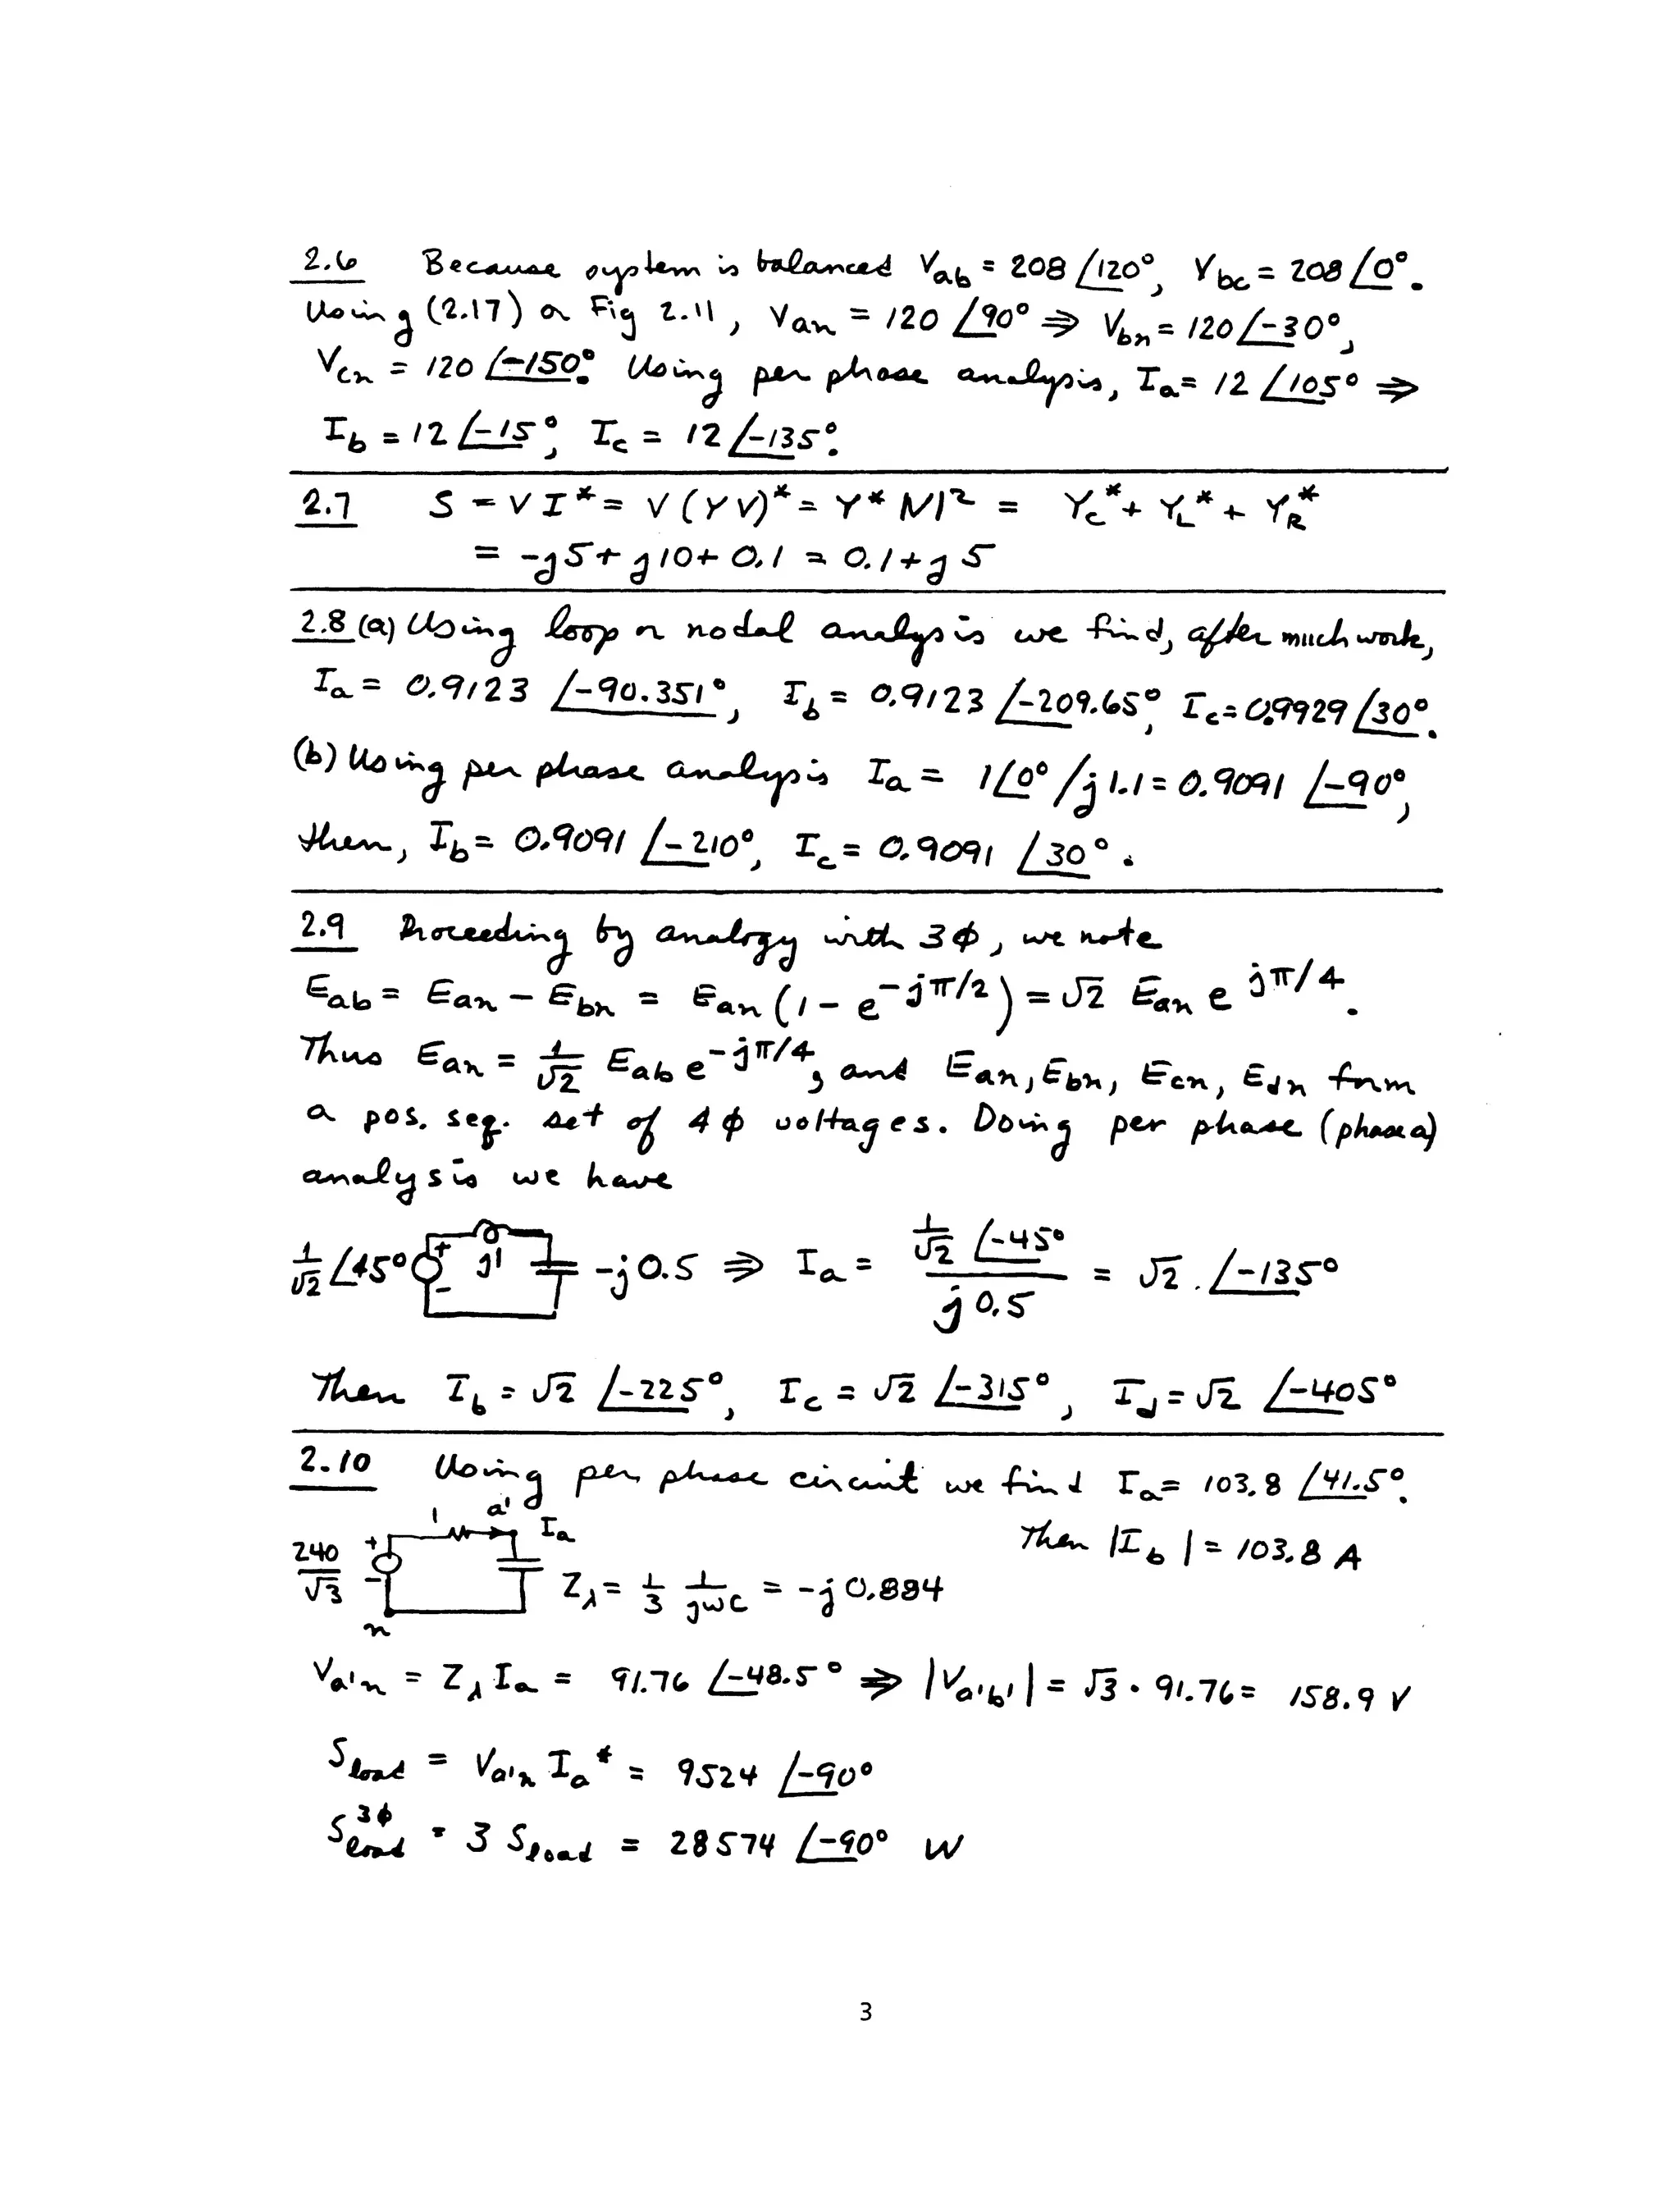 2.6 Because system is balanced Vab = 208 ∠120°, Vbc = 208 ∠0°.
Using (2.17) or Fig 2.11, Van = 120 ∠90° ⇒ Vbn = 120 ∠-30°,
Vcn = 120 ∠-150°. Using per phase analysis, Ia = 12 ∠105° ⇒
Ib = 12 ∠-15°, Ic = 12 ∠-135°.
2.7 S = VI* = V(YV)* = Y*|V|² = Yc* + YL* + YR*
= -j5 + j10 + 0.1 = 0.1 + j5
2.8 (a) Using loop or nodal analysis we find, after much work,
Ia = 0.9123 ∠-90.351°, Ib = 0.9123 ∠-209.65°, Ic = 0.9929 ∠30°.
(b) Using per phase analysis Ia = 1∠0° / j1.1 = 0.9091 ∠-90°,
then, Ib = 0.9091 ∠-210°, Ic = 0.9091 ∠30°.
2.9 Proceeding by analogy with 3ϕ, we note
Eab = Ean - Ebn = Ean (1 - e^(-jπ/2)) = √2 Ean e^(jπ/4).
Thus Ean = 1/√2 Eab e^(-jπ/4), and Ean, Ebn, Ecn, Edn form
a pos. seq. set of 4ϕ voltages. Doing per phase (phase a)
analysis we have
1/√2 ∠45° + - j1 -j0.5 ⇒ Ia = (1/√2 ∠-45°) / j0.5 = √2 . ∠-135°
Then Ib = √2 ∠-225°, Ic = √2 ∠-315°, Id = √2 ∠-405°
2.10 Using per phase circuit we find Ia = 103.8 ∠41.5°.
1 a' Ia Then |Ib| = 103.8 A
240/√3 + - n Zλ = 1/3 1/jωC = -j0.884
Va'n = Zλ Ia = 91.76 ∠-48.5° ⇒ |Va'b'| = √3 · 91.76 = 158.9 V
Sload = Va'n Ia* = 9524 ∠-90°
Sload^3ϕ = 3 Sload = 28574 ∠-90° W
3